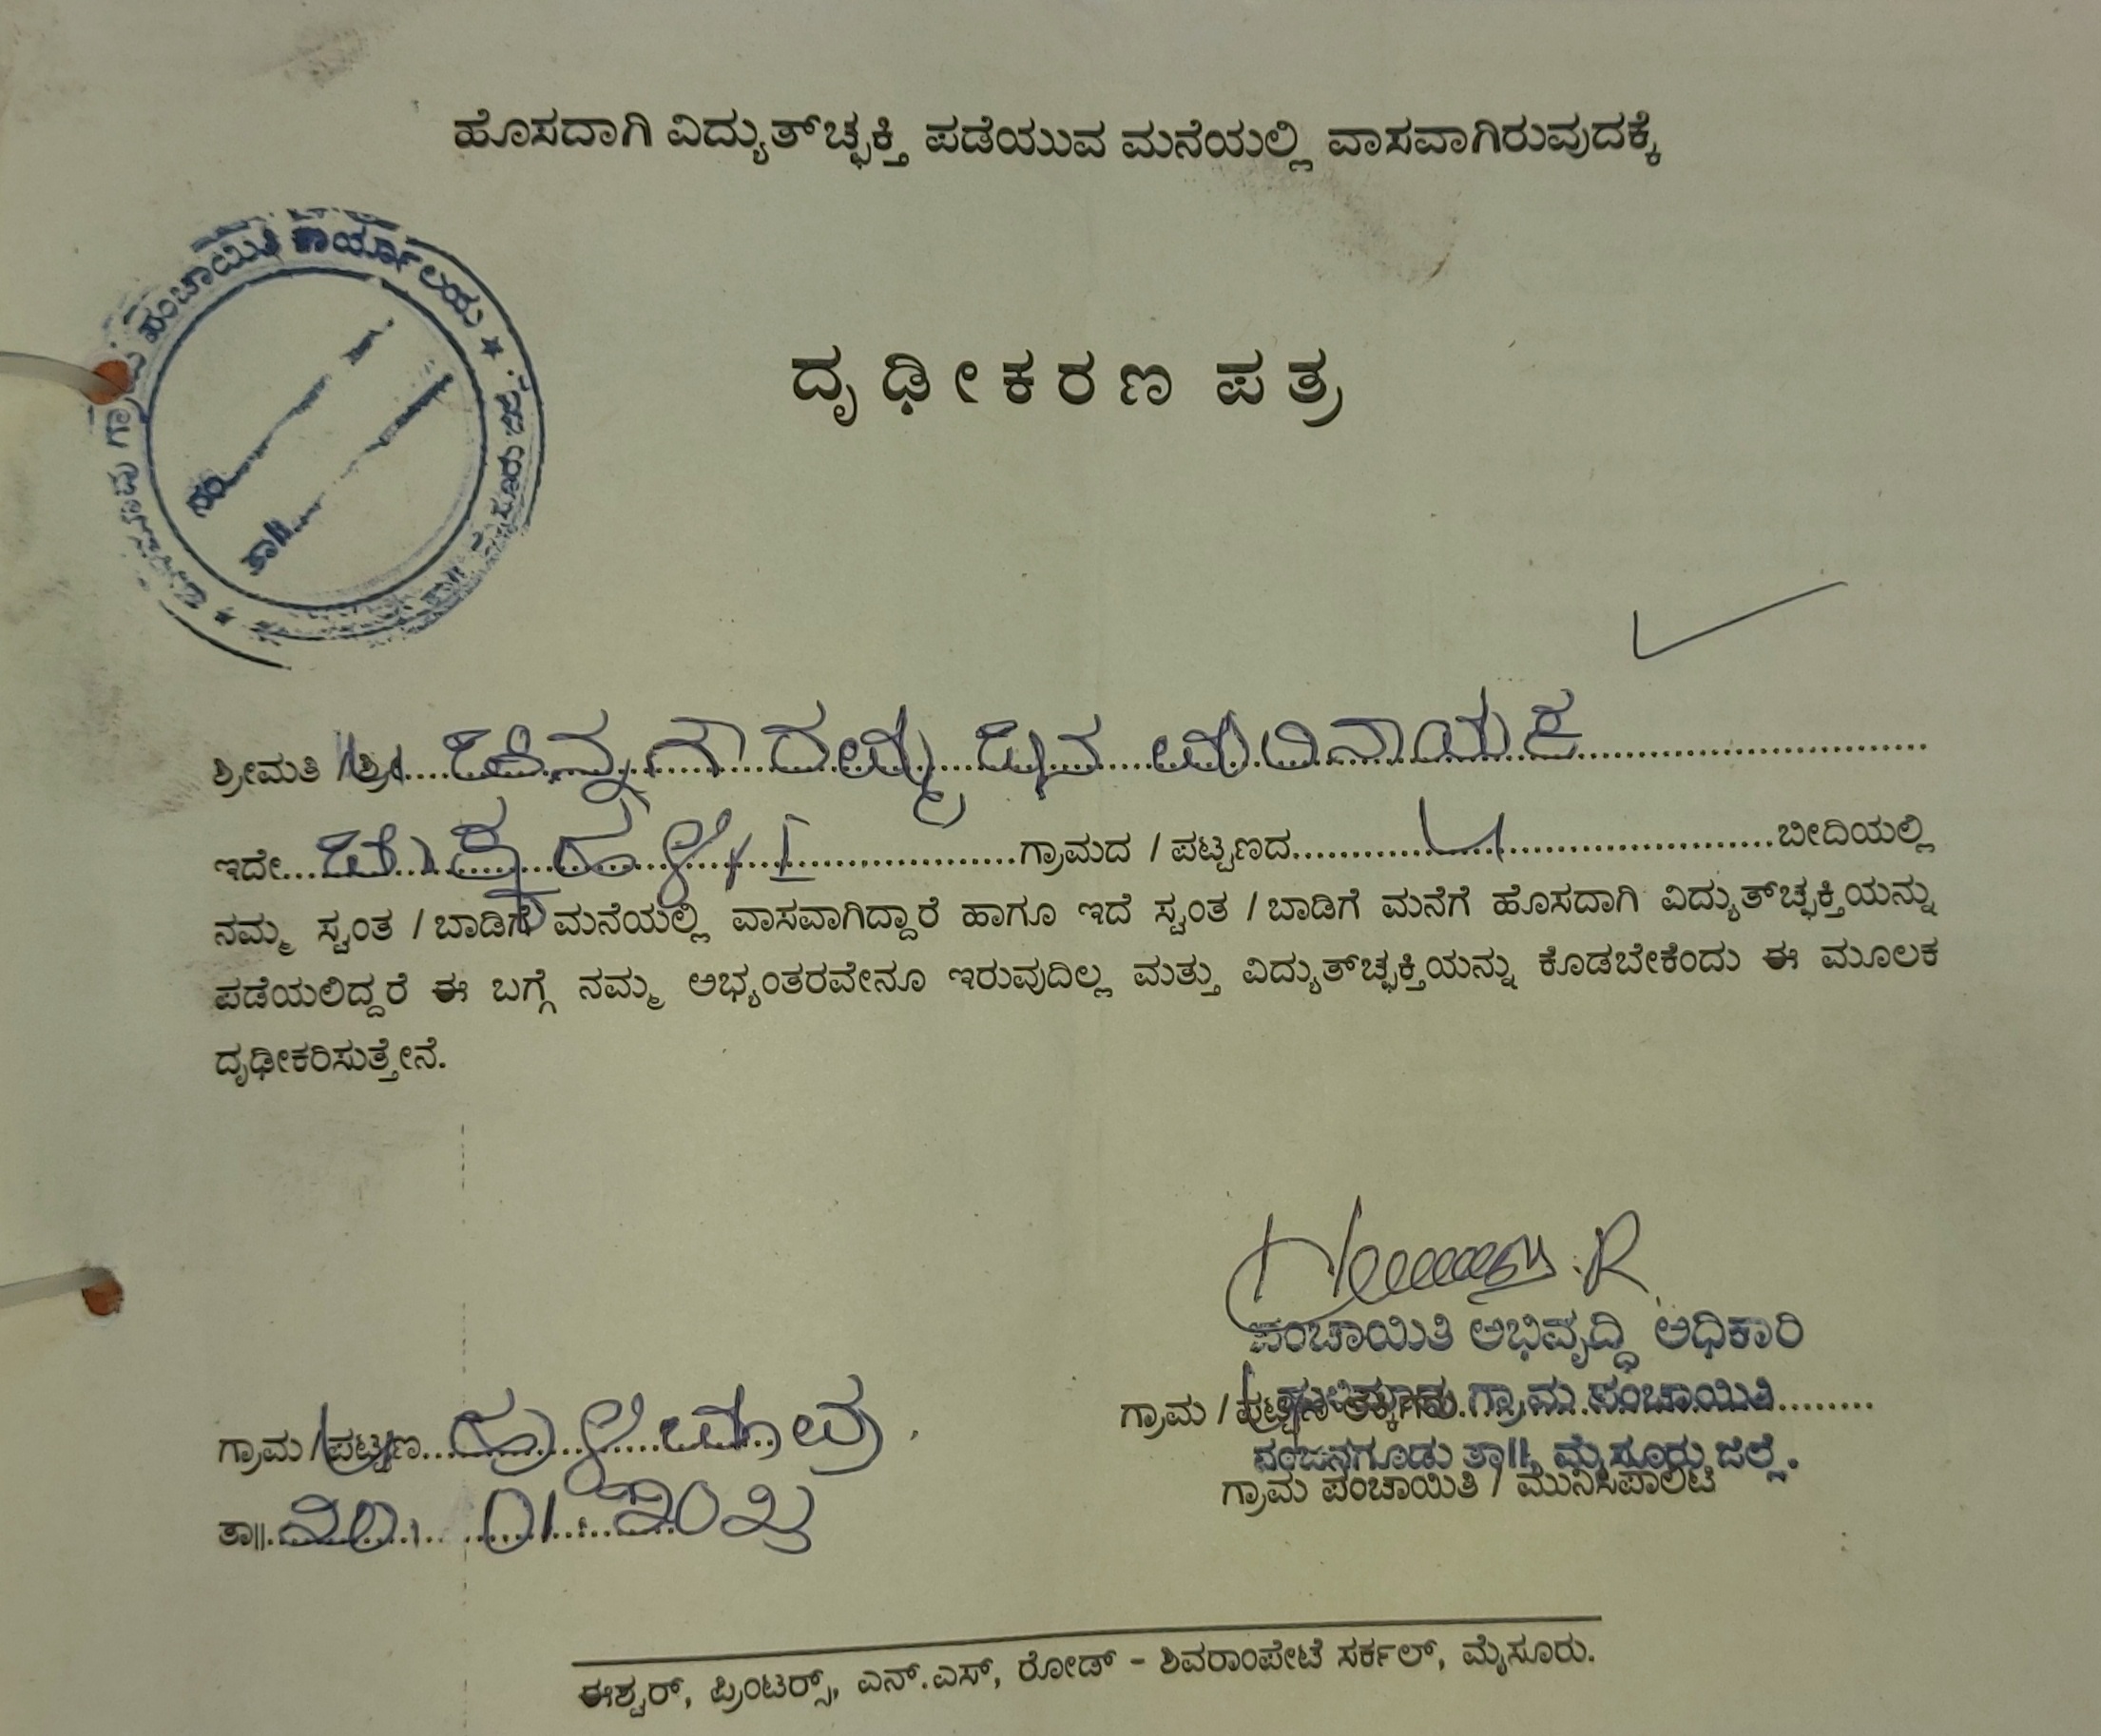 ಹೊಸದಾಗಿ ವಿದ್ಯುತ್‌ಚ್ಛಕ್ತಿ ಪಡೆಯುವ ಮನೆಯಲ್ಲಿ ವಾಸವಾಗಿರುವುದಕ್ಕೆ
ಗ್ರಾಮ ಪಂಚಾಯಿತಿ ಕಾರ್ಯಾಲಯ ★ ಮೈಸೂರು ಜಿಲ್ಲೆ
ನಂ
ತಾ||
ದೃಢೀಕರಣ ಪತ್ರ
ಶ್ರೀಮತಿ / ಶ್ರೀ ಚಿನ್ನಗಾದಮ್ಮ ಮಾದಿನಾಯಕ
ಇದೇ ಗ್ರಾಮದ / ಪಟ್ಟಣದ ಬೀದಿಯಲ್ಲಿ
ನಮ್ಮ ಸ್ವಂತ / ಬಾಡಿಗೆ ಮನೆಯಲ್ಲಿ ವಾಸವಾಗಿದ್ದಾರೆ ಹಾಗೂ ಇದೆ ಸ್ವಂತ / ಬಾಡಿಗೆ ಮನೆಗೆ ಹೊಸದಾಗಿ ವಿದ್ಯುತ್‌ಚ್ಛಕ್ತಿಯನ್ನು
ಪಡೆಯಲಿದ್ದರೆ ಈ ಬಗ್ಗೆ ನಮ್ಮ ಅಭ್ಯಂತರವೇನೂ ಇರುವುದಿಲ್ಲ ಮತ್ತು ವಿದ್ಯುತ್‌ಚ್ಛಕ್ತಿಯನ್ನು ಕೊಡಬೇಕೆಂದು ಈ ಮೂಲಕ
ದೃಢೀಕರಿಸುತ್ತೇನೆ.
ಪಂಚಾಯಿತಿ ಅಭಿವೃದ್ಧಿ ಅಧಿಕಾರಿ
ಗ್ರಾಮ / ಪಟ್ಟಣ ಹುಳಿಮಾವು
ಗ್ರಾಮ / ಪಟ್ಟಣ ಗ್ರಾಮ ಪಂಚಾಯಿತಿ
ನಂಜನಗೂಡು ತಾ||, ಮೈಸೂರು ಜಿಲ್ಲೆ.
ಗ್ರಾಮ ಪಂಚಾಯಿತಿ / ಮುನಿಸಿಪಾಲಿಟಿ
ತಾ||
ಈಶ್ವರ್, ಪ್ರಿಂಟರ್ಸ್, ಎನ್.ಎಸ್, ರೋಡ್ - ಶಿವರಾಂಪೇಟೆ ಸರ್ಕಲ್, ಮೈಸೂರು.